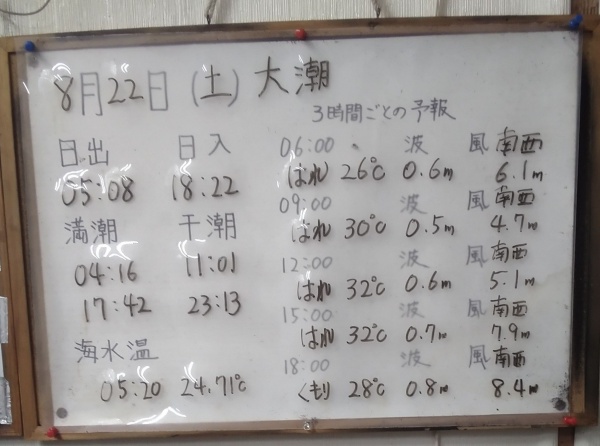 8月22日 (土) 大潮
3時間ごとの予報
日出 日入
05:08 18:22
満潮 干潮
04:16 11:01
17:42 23:13
海水温
05:20 24.71℃
06:00 波 風 南西
はれ 26℃ 0.6m 6.1m
09:00 波 風 南西
はれ 30℃ 0.5m 4.7m
12:00 波 風 南西
はれ 32℃ 0.6m 5.1m
15:00 波 風 南西
はれ 32℃ 0.7m 7.9m
18:00 波 風 南西
くもり 28℃ 0.8m 8.4m